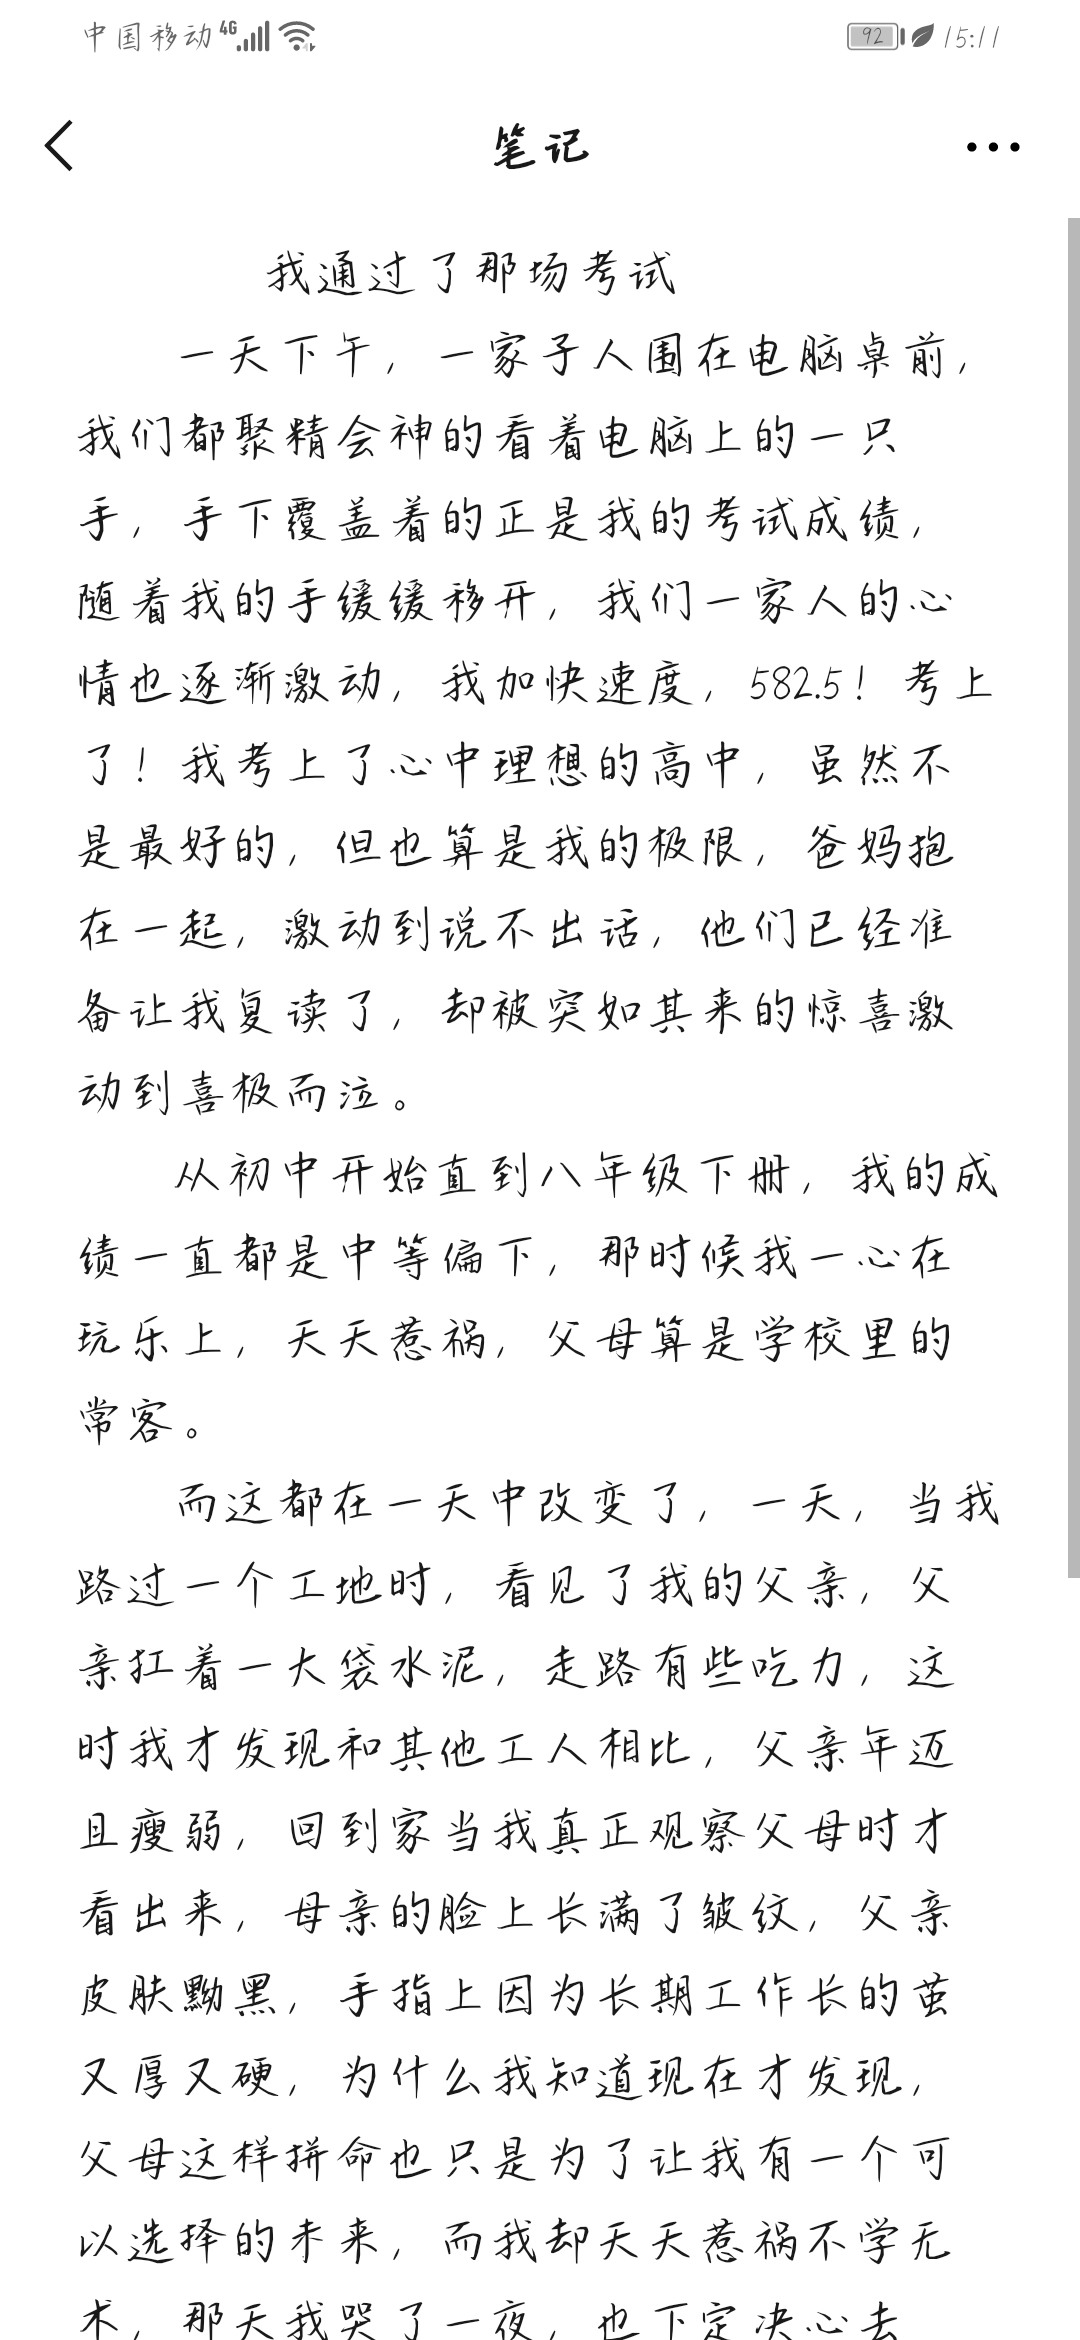 中国移动 4G 92 15:11
笔记
我通过了那场考试
一天下午，一家子人围在电脑桌前，
我们都聚精会神的看着电脑上的一只
手，手下覆盖着的正是我的考试成绩，
随着我的手缓缓移开，我们一家人的心
情也逐渐激动，我加快速度，582.5！考上
了！我考上了心中理想的高中，虽然不
是最好的，但也算是我的极限，爸妈抱
在一起，激动到说不出话，他们已经准
备让我复读了，却被突如其来的惊喜激
动到喜极而泣。
从初中开始直到八年级下册，我的成
绩一直都是中等偏下，那时候我一心在
玩乐上，天天惹祸，父母算是学校里的
常客。
而这都在一天中改变了，一天，当我
路过一个工地时，看见了我的父亲，父
亲扛着一大袋水泥，走路有些吃力，这
时我才发现和其他工人相比，父亲年迈
且瘦弱，回到家当我真正观察父母时才
看出来，母亲的脸上长满了皱纹，父亲
皮肤黝黑，手指上因为长期工作长的茧
又厚又硬，为什么我知道现在才发现，
父母这样拼命也只是为了让我有一个可
以选择的未来，而我却天天惹祸不学无
术，那天我哭了一夜，也下定决心去